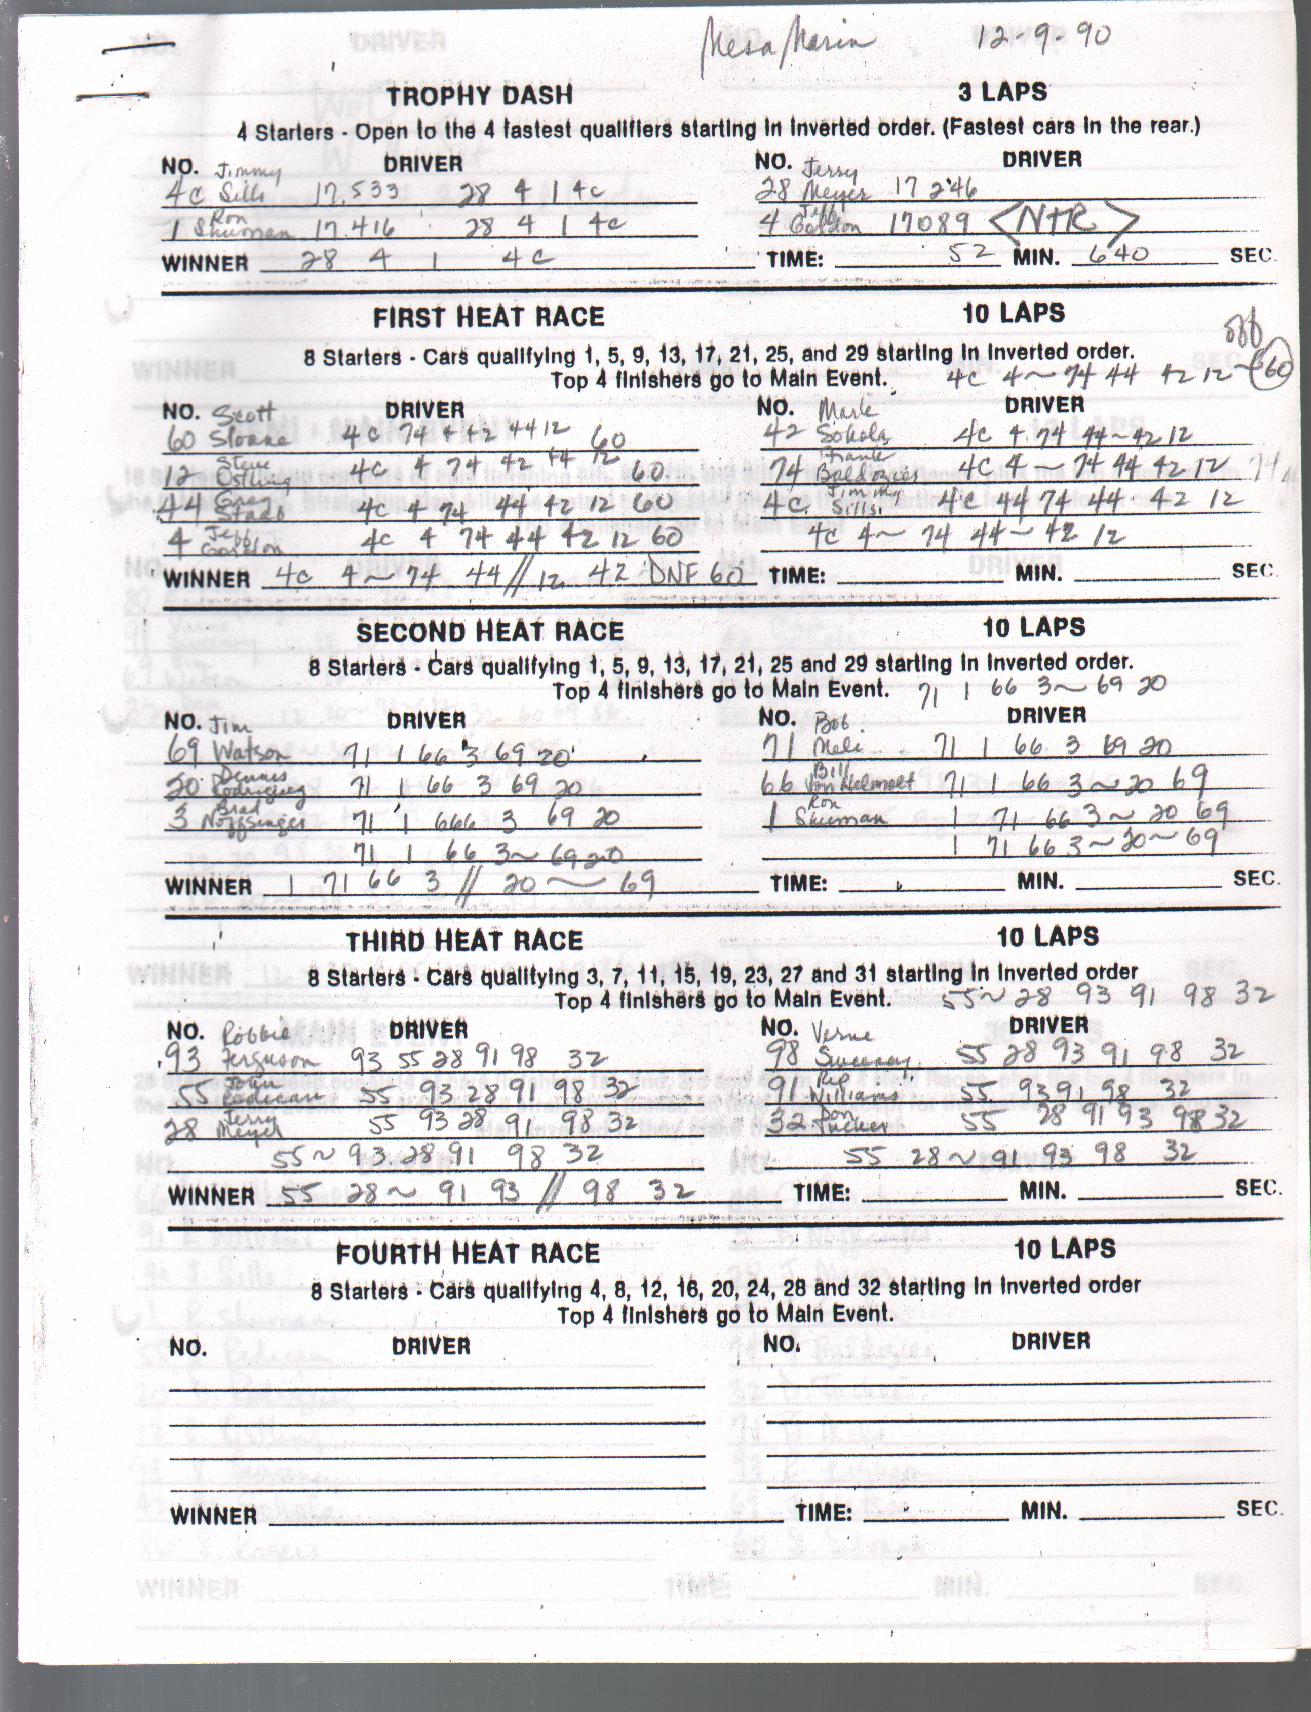 Mesa Marin 12-9-90
TROPHY DASH 3 LAPS
4 Starters - Open to the 4 fastest qualifiers starting in inverted order. (Fastest cars in the rear.)
NO. DRIVER NO. DRIVER
4C Jimmy Sills 17.533 28 4 1 4C 28 Jerry Meyer 17 246
1 Ron Shuman 17.416 28 4 1 4C 4 Jeff Gordon 17089 <NTR>
WINNER 28 4 1 4C TIME: 52 MIN. 640 SEC.
FIRST HEAT RACE 10 LAPS
8 Starters - Cars qualifying 1, 5, 9, 13, 17, 21, 25, and 29 starting in inverted order.
off
Top 4 finishers go to Main Event. 4C 4~ 74 44 42 12 ~ 60
NO. DRIVER NO. DRIVER
60 Scott Sloane 4C 74 4 42 44 12 60 42 Mark Sokola 4C 4 74 44~42 12
12 Steve Ostling 4C 4 74 42 44 12 60 74 Frank Baldozier 4C 4 ~ 74 44 42 12
44 Greg Staab 4C 4 74 44 42 12 60 4C Jimmy Sills 4C 44 74 44 42 12
4 Jeff Gordon 4C 4 74 44 42 12 60 4C 4~ 74 44~ 42 12
WINNER 4C 4~ 74 44 // 12 42 DNF 60 TIME: MIN. SEC.
SECOND HEAT RACE 10 LAPS
8 Starters - Cars qualifying 1, 5, 9, 13, 17, 21, 25 and 29 starting in inverted order.
Top 4 finishers go to Main Event. 71 1 66 3~ 69 20
NO. DRIVER NO. DRIVER
69 Jim Watson 71 1 66 3 69 20 71 Bob Meli 71 1 66 3 69 20
20 Dennis Rodriguez 71 1 66 3 69 20 66 Bill VonHelmolt 71 1 66 3~20 69
3 Brad Noffsinger 71 1 666 3 69 20 1 Ron Shuman 1 71 66 3~ 20 69
71 1 66 3~ 69 20 1 71 66 3~20~ 69
WINNER 1 71 66 3 // 20 ~ 69 TIME: MIN. SEC.
THIRD HEAT RACE 10 LAPS
8 Starters - Cars qualifying 3, 7, 11, 15, 19, 23, 27 and 31 starting in inverted order
Top 4 finishers go to Main Event. 55~ 28 93 91 98 32
NO. DRIVER NO. DRIVER
93 Robbie Ferguson 93 55 28 91 98 32 98 Verne Sweeney 55 28 93 91 98 32
55 John Redican 55 93 28 91 98 32 91 Rip Williams 55 93 91 98 32
28 Jerry Meyer 55 93 28 91 98 32 32 Don Tucker 55 28 91 93 98 32
55 ~ 93 28 91 98 32 55 28~ 91 93 98 32
WINNER 55 28~ 91 93 // 98 32 TIME: MIN. SEC.
FOURTH HEAT RACE 10 LAPS
8 Starters - Cars qualifying 4, 8, 12, 16, 20, 24, 28 and 32 starting in inverted order
Top 4 finishers go to Main Event.
NO. DRIVER NO. DRIVER
WINNER TIME: MIN. SEC.